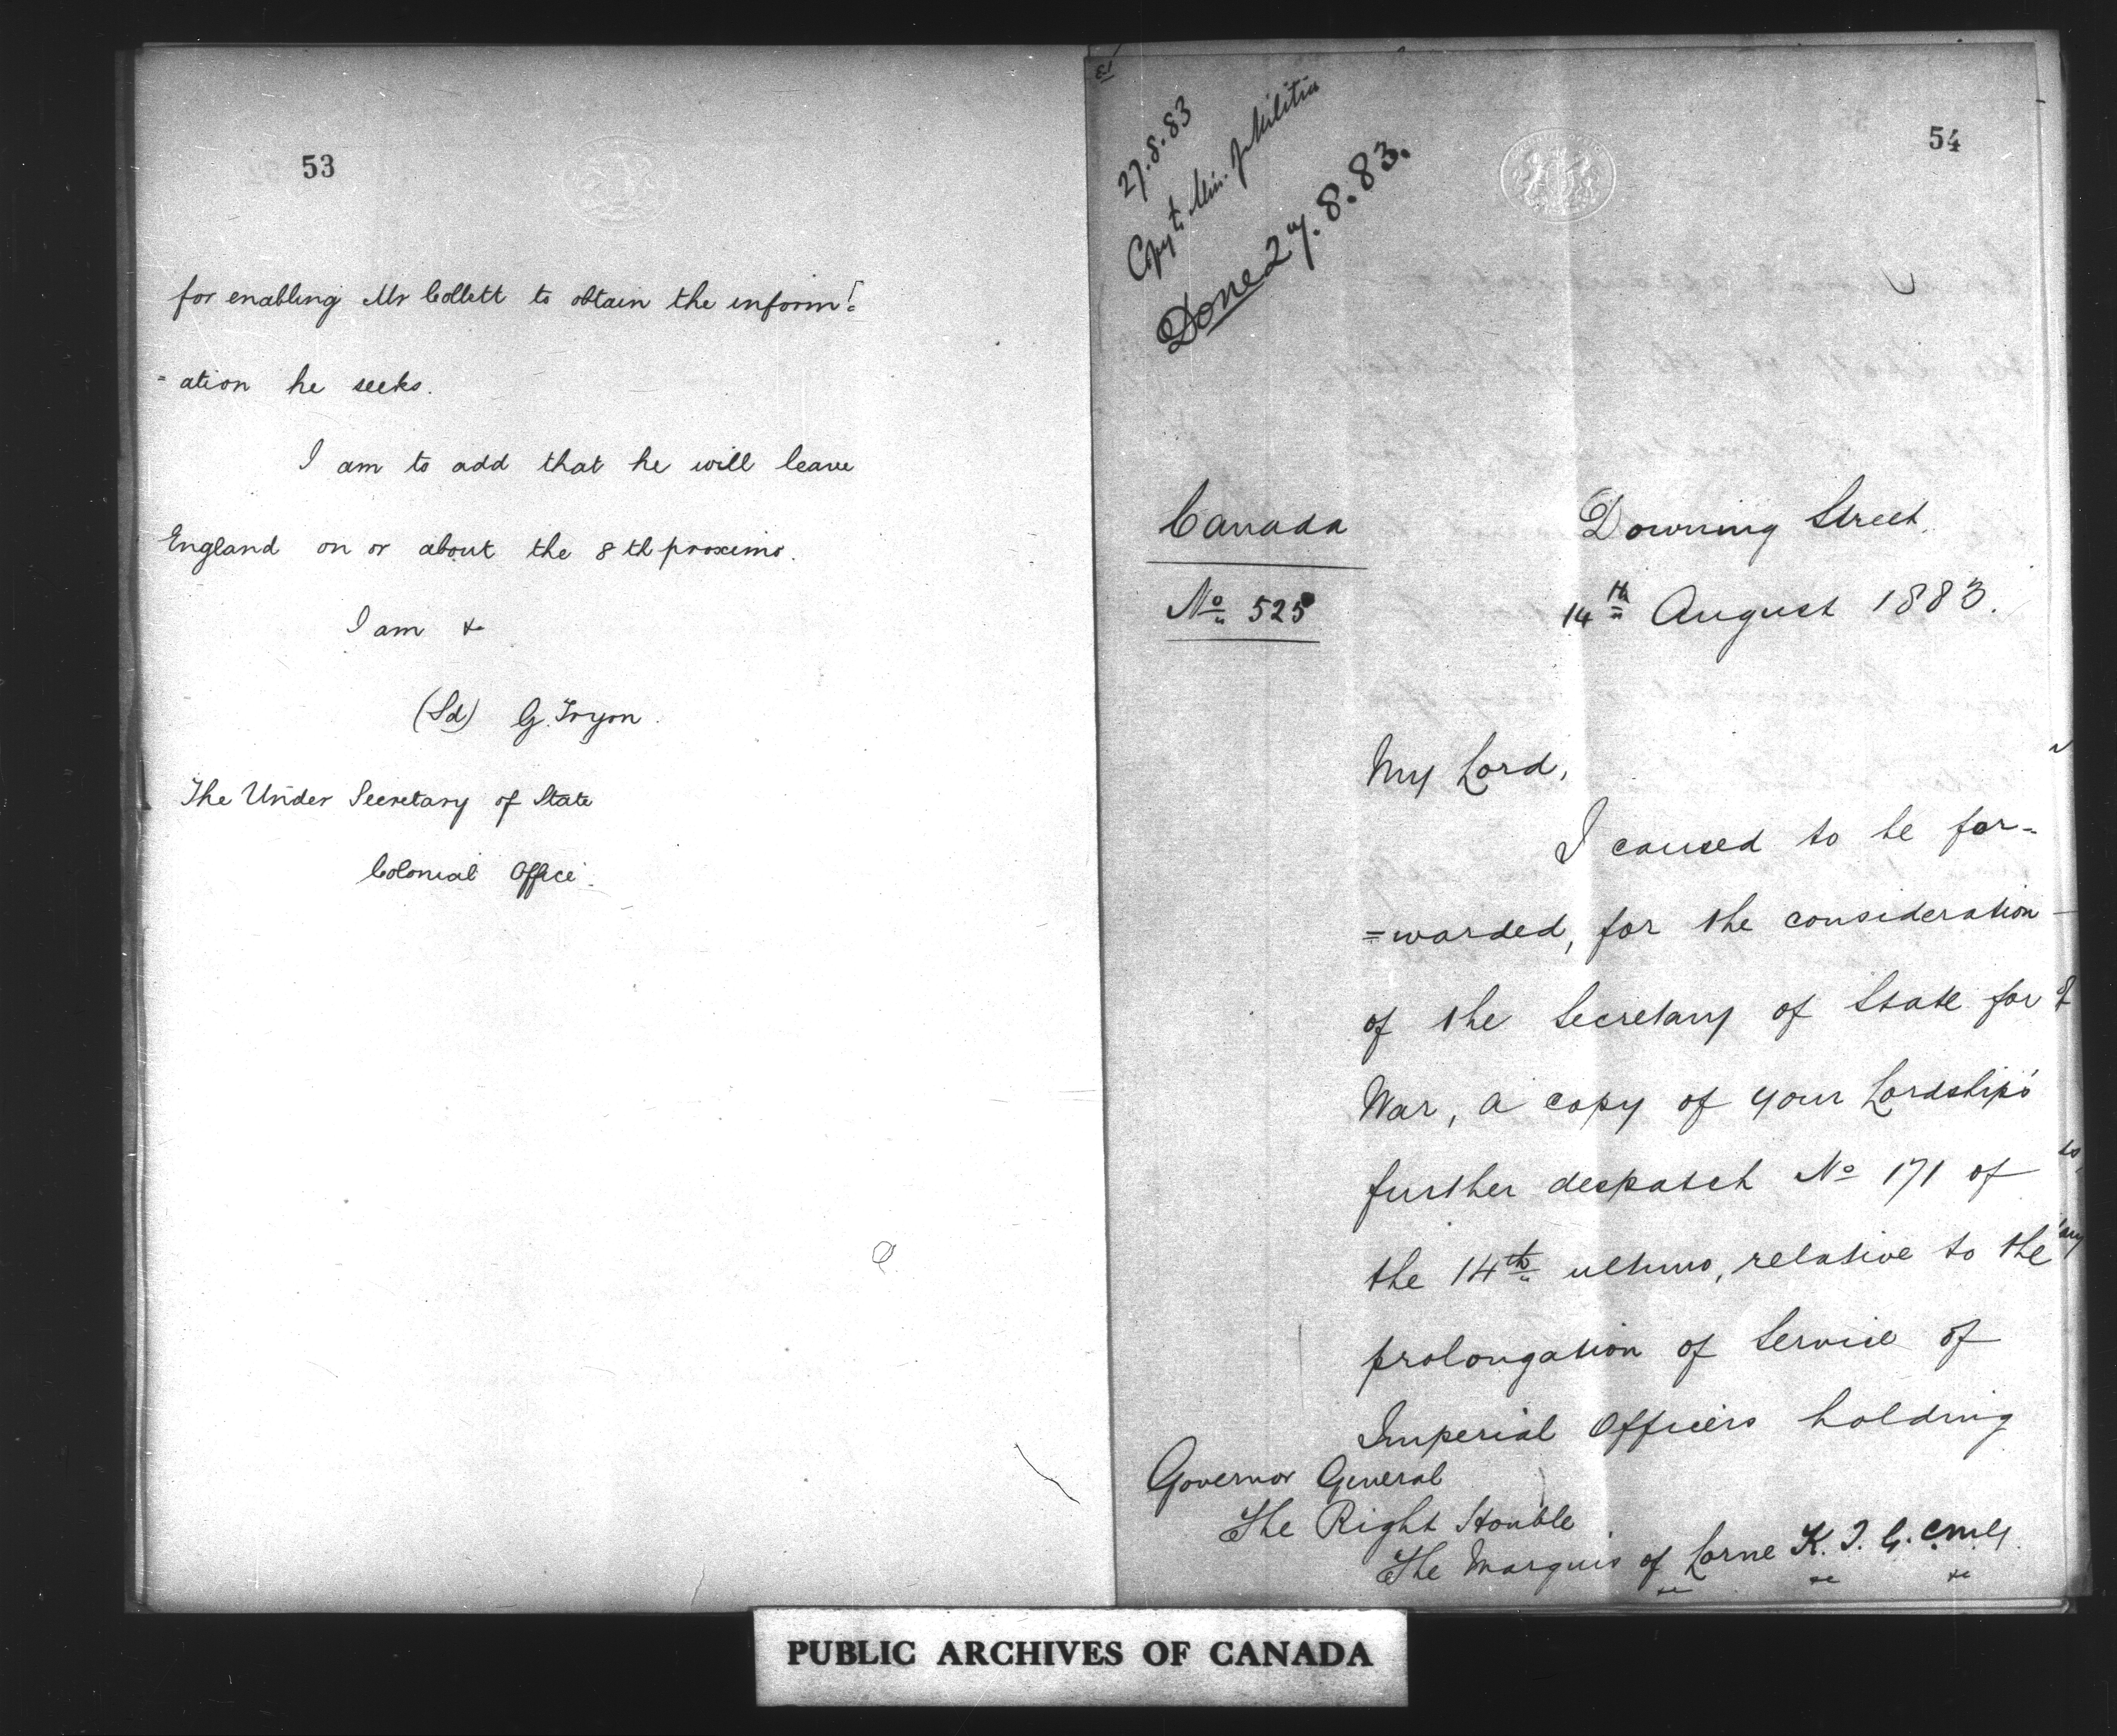 53
for enabling Mr Collett to obtain the inform:
=ation he seeks.
I am to add that he will leave
England on or about the 8th proximo.
I am &
(Sd) G. Tryon.
The Under Secretary of State
Colonial Office.
54
27.8.83
Copy to Min. of Militia
Done 27.8.83.
Canada
No 525
Downing Street.
14th August 1883.
My Lord,
I caused to be for-
=warded, for the consideration
of the Secretary of State for
War, a copy of your Lordship's
further despatch No 171 of
the 14th ultimo, relative to the
prolongation of Service of
Imperial Officers holding
Governor General
The Right Honble
The Marquis of Lorne K.T. G.C.M.G.
&c &c &c
PUBLIC ARCHIVES OF CANADA